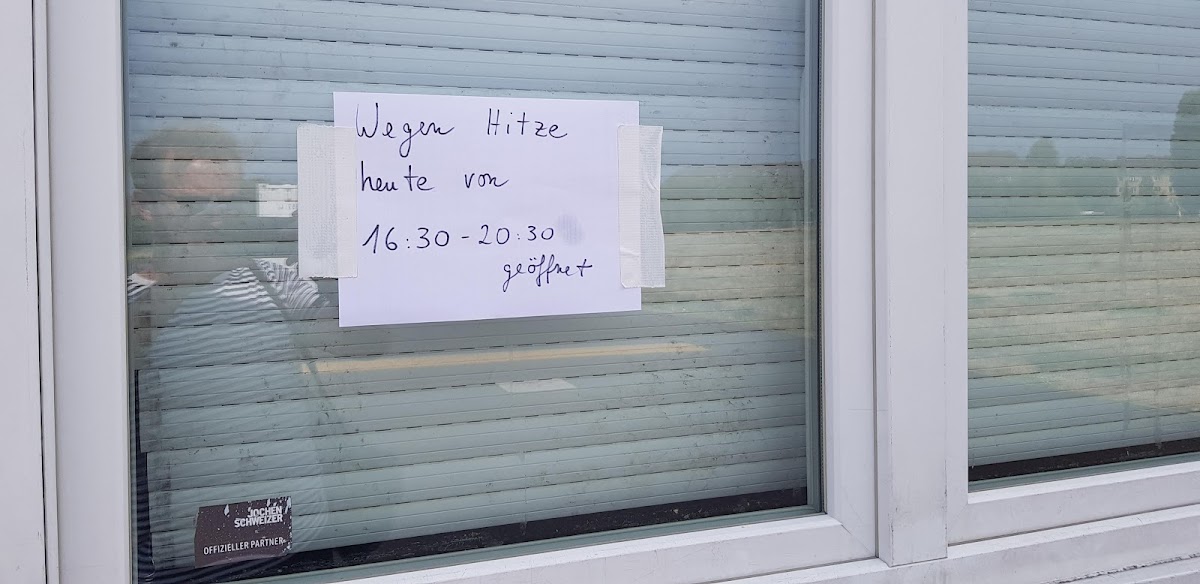 Wegen Hitze
heute von
16:30 - 20:30
geöffnet
JOCHEN
SCHWEIZER
OFFIZIELLER PARTNER